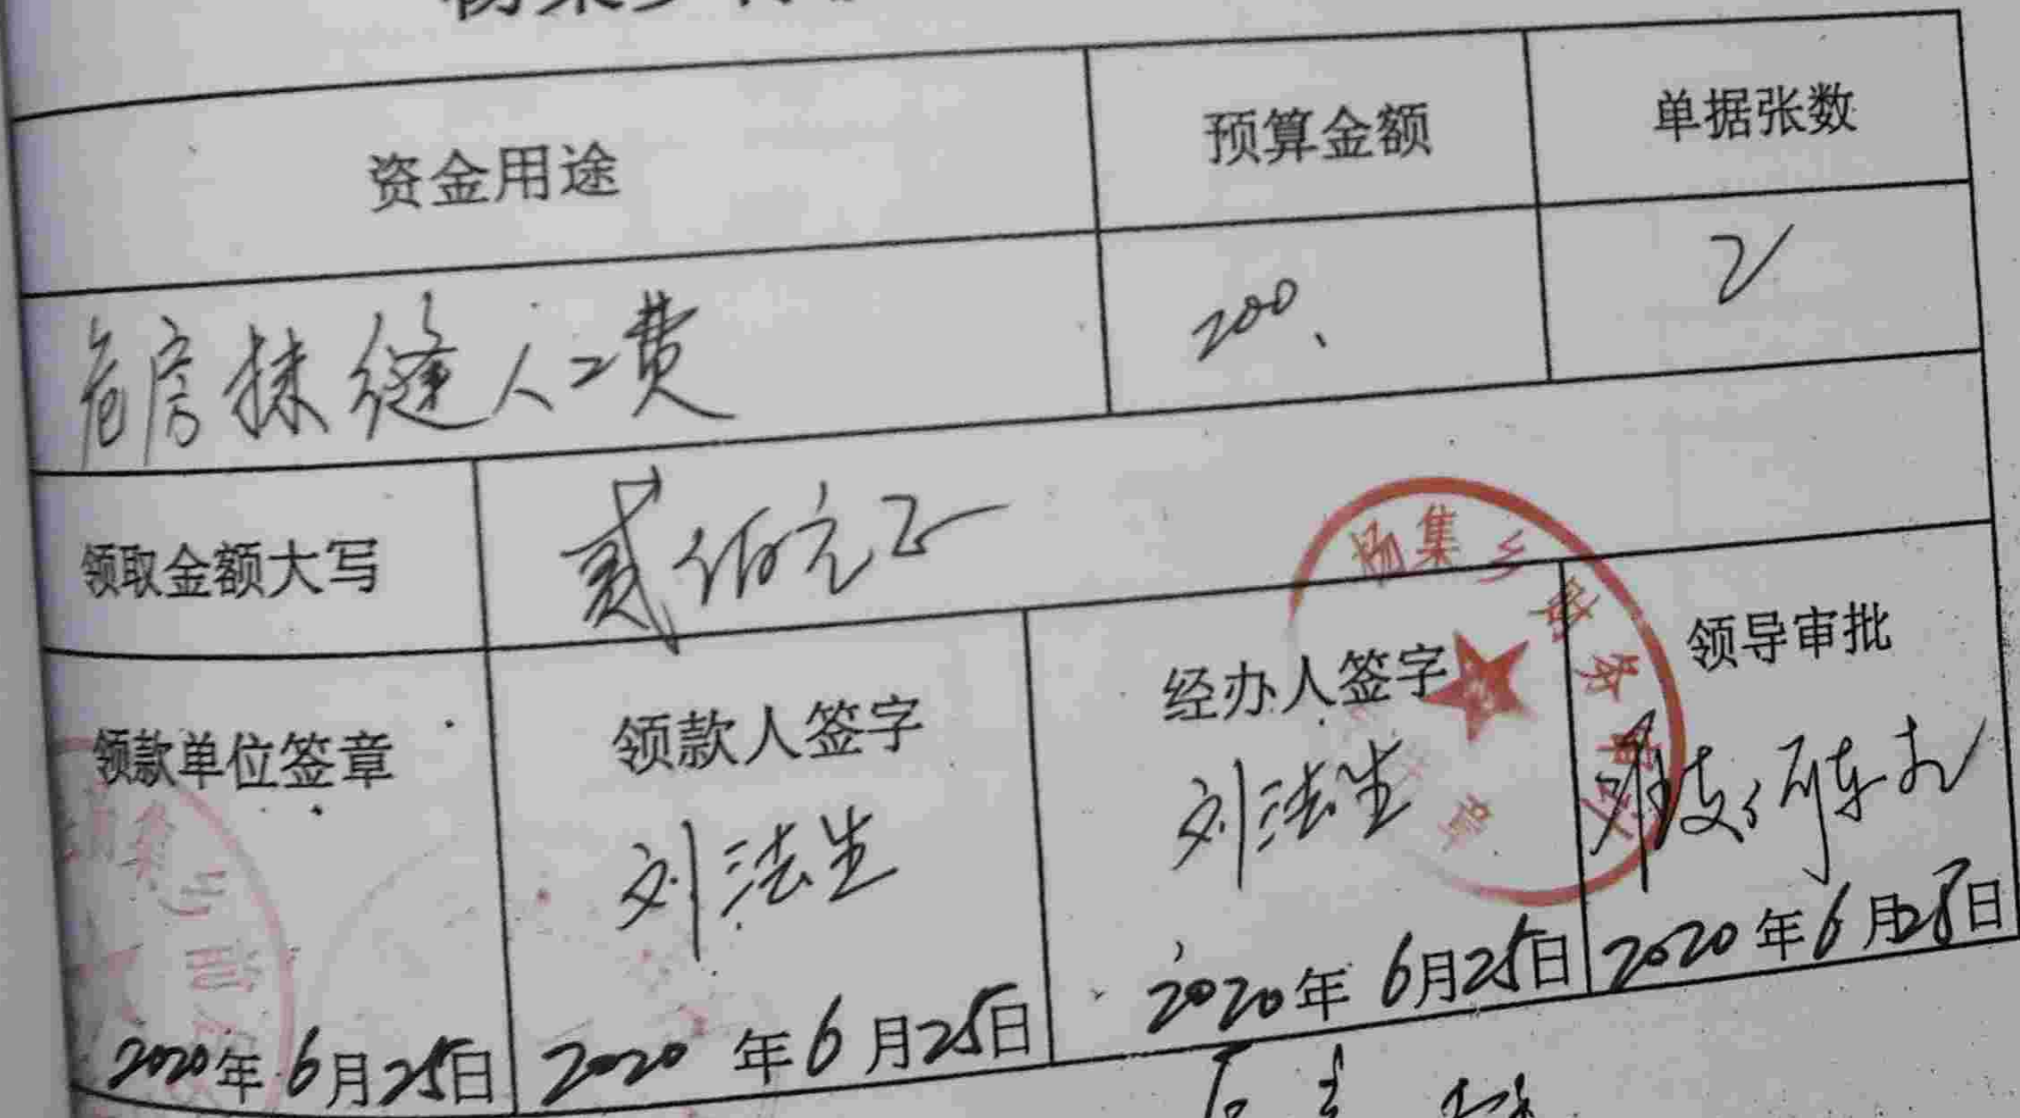 资金用途 预算金额 单据张数
危房抹缝人工费 200、 2
领取金额大写 贰佰元正
杨集乡财务审计
章
领款单位签章 领款人签字 经办人签字 领导审批
刘法生 刘法生
2020年6月25日 2020年6月25日 2020年6月25日 2020年6月28日